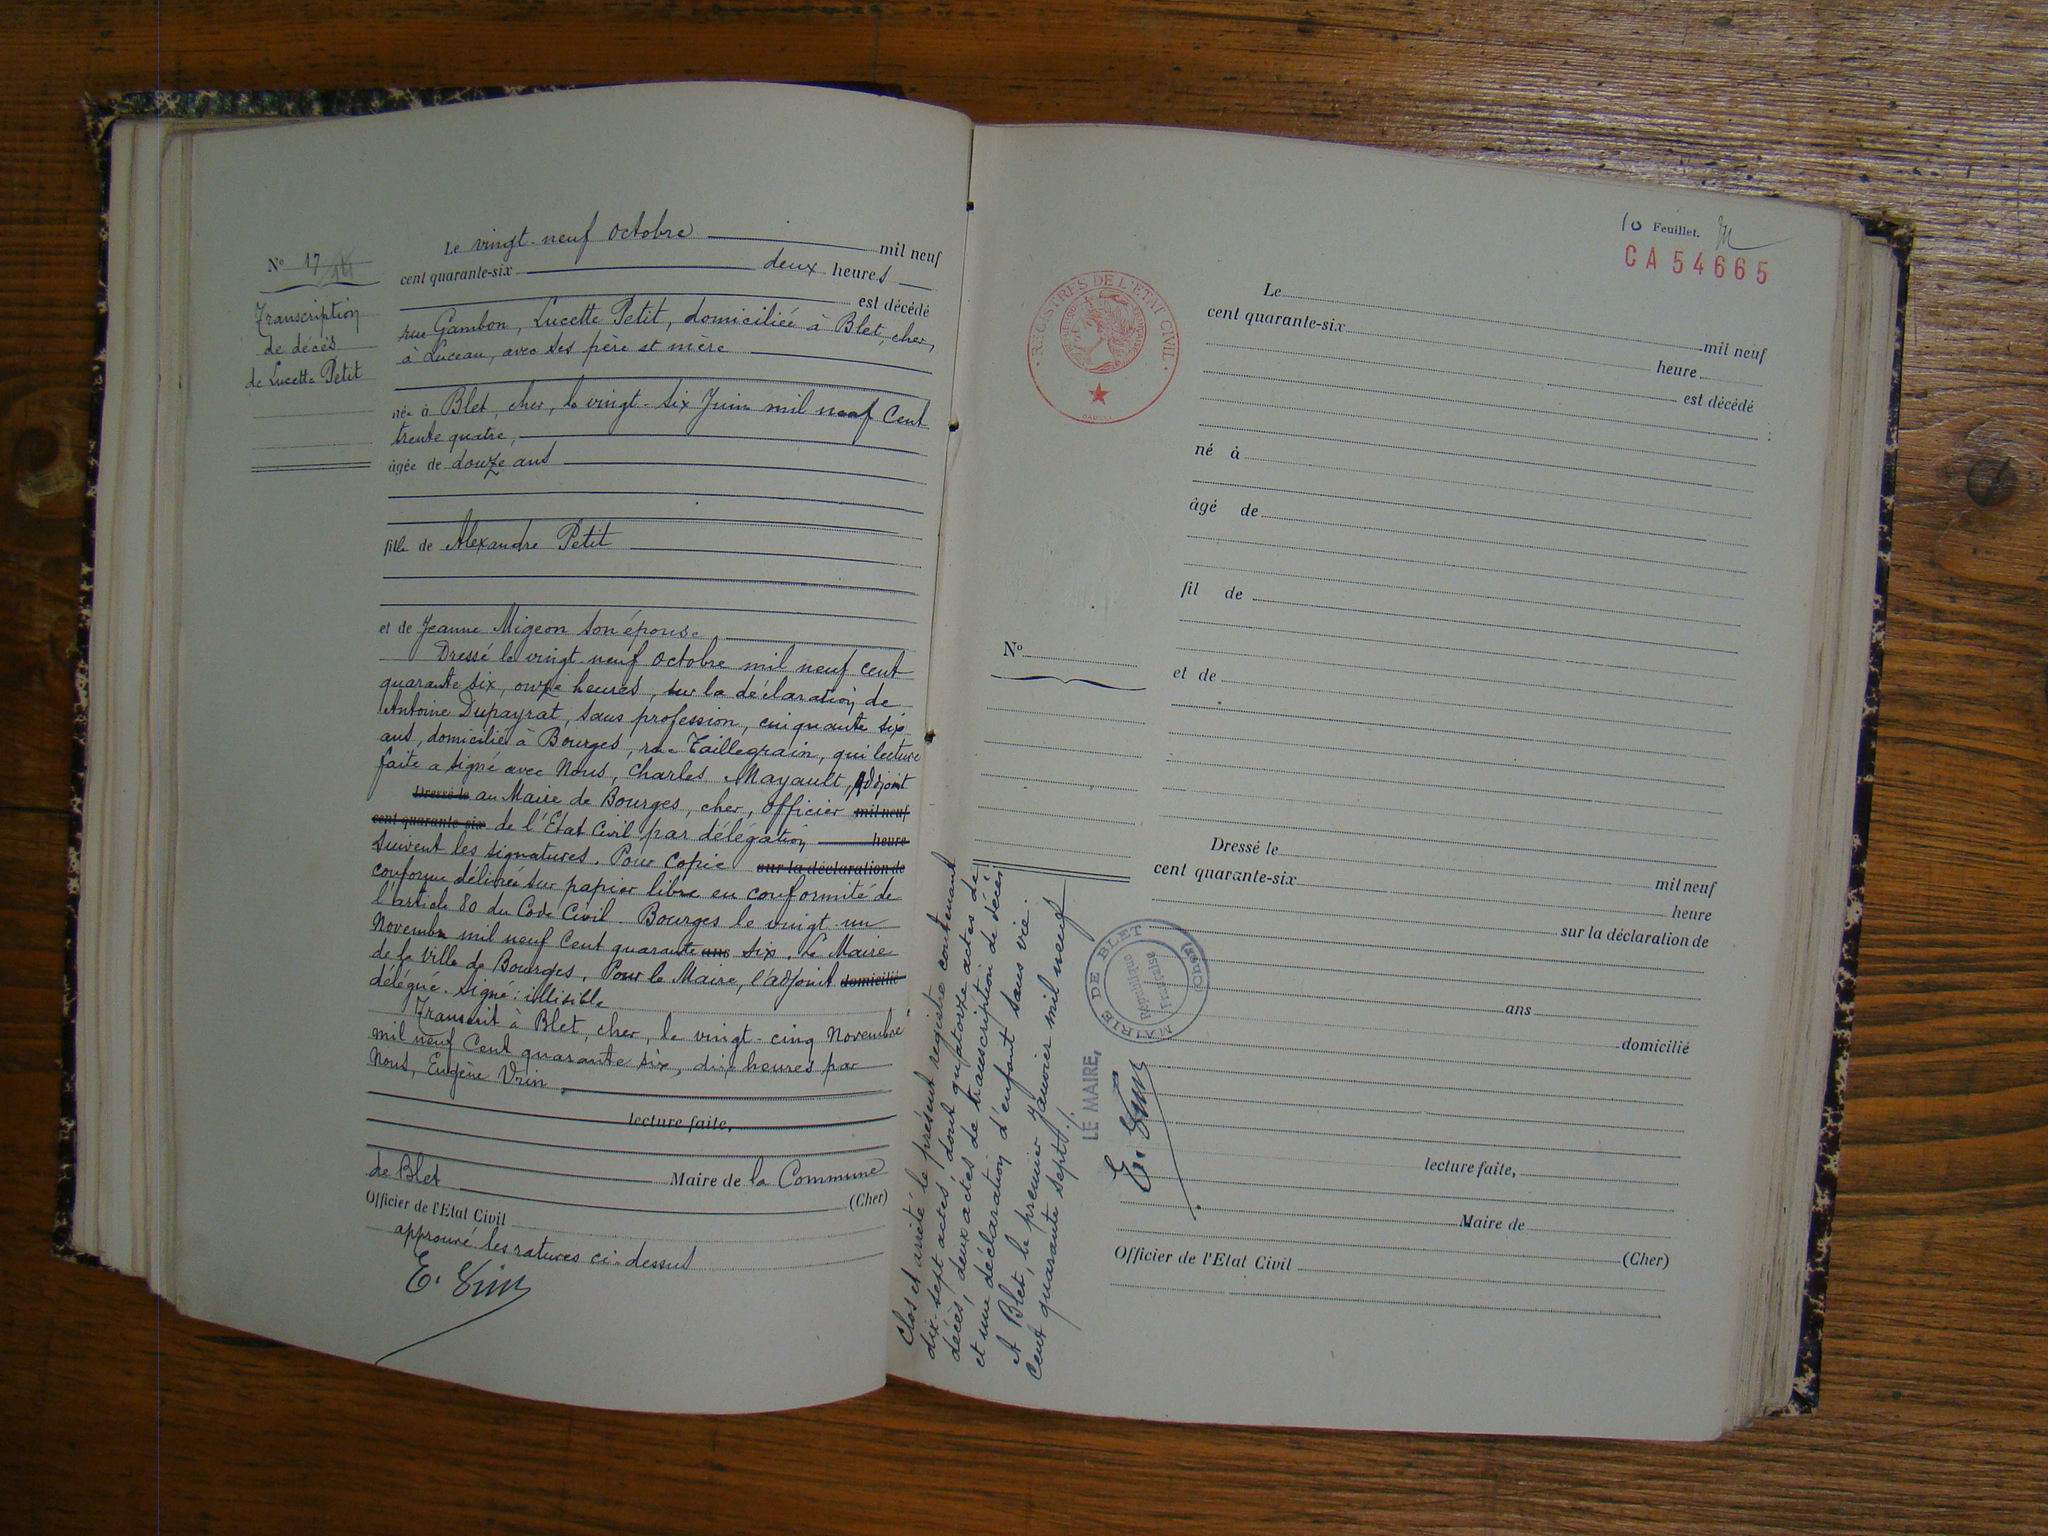 N° 17
Transcription
de décès
de Lucette Petit
Le vingt-neuf Octobre mil neuf
cent quarante-six deux heures
est décédé
rue Gambon, Lucette Petit, domiciliée à Blet, cher,
à Luceau, avec ses père et mère
née à Blet, cher, le vingt-six Juin mil neuf Cent
trente quatre,
âgée de douze ans
fille de Alexandre Petit
et de Jeanne Migeon son épouse
Dressé le vingt-neuf Octobre mil neuf cent
quarante six, onze heures, sur la déclaration de
Antoine Dupayrat, sans profession, cinquante six
ans, domicilié à Bourges, rue Taillegrain, qui lecture
faite a signé avec Nous, Charles Mayault, Adjoint
Dressé le au Maire de Bourges, cher, Officier mil neuf
cent quarante-six de l'Etat Civil par délégation heure
Suivent les signatures. Pour Copie sur la déclaration de
conforme délivrée sur papier libre en conformité de
l'article 80 du Code Civil. Bourges le vingt-un
Novembre mil neuf Cent quarante ans six. Le Maire
de la ville de Bourges. Pour le Maire, l'adjoint domicilié
délégué. Signé: illisible
Transcrit à Blet, cher, le vingt-cinq Novembre
mil neuf Cent quarante six, dix heures par
Nous, Eugène Vrin
lecture faite,
de Blet Maire de la Commune
(Cher)
Officier de l'Etat Civil
approuvé les ratures ci-dessus
E. Vrin
Clos et arrêté le présent registre contenant
dix-sept actes, dont quatorze actes de
décès, deux actes de transcription de décès
et une déclaration d'enfant sans vie.
A Blet, le premier Janvier mil neuf
Cent quarante sept.
LE MAIRE,
E. Vrin
MAIRIE DE BLET (CHER)
République
Française
10 Feuillet.
CA 54665
REGISTRES DE L'ETAT CIVIL
Le
mil neuf
cent quarante-six
heure
est décédé
né à
âgé de
fil de
et de
N°
Dressé le
mil neuf
cent quarante-six
heure
sur la déclaration de
ans
domicilié
lecture faite,
Maire de
(Cher)
Officier de l'Etat Civil